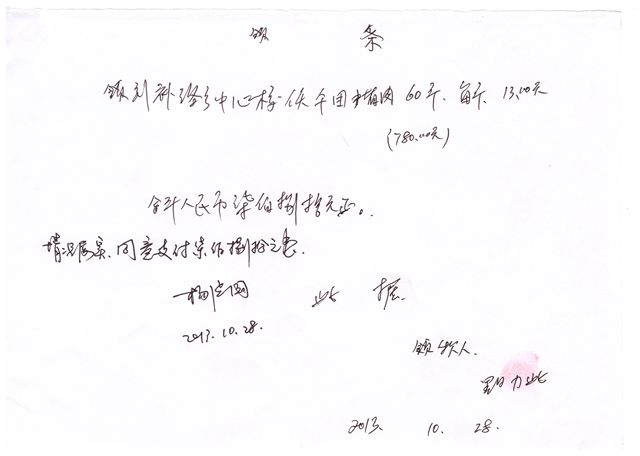 领 条
领到补经乡中心校供午团猪肉60斤、每斤13.00元
(780.00元)
合计人民币柒佰捌拾元正。
情况属实，同意支付柒佰捌拾元
此 据
2013.10.28.
领款人
2013. 10. 28.